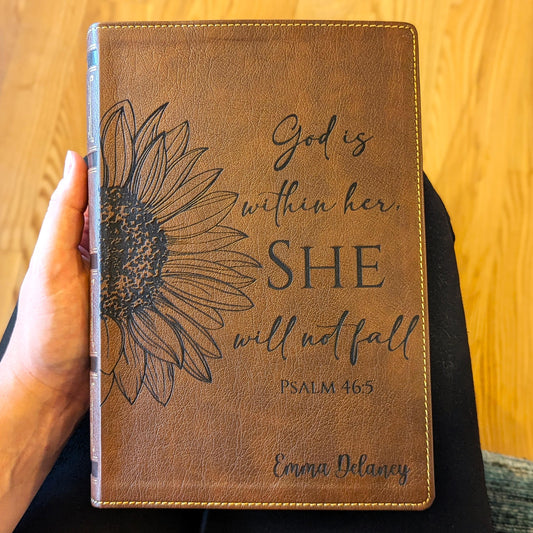 God is
within her,
SHE
will not fall
PSALM 46:5
Emma Delaney